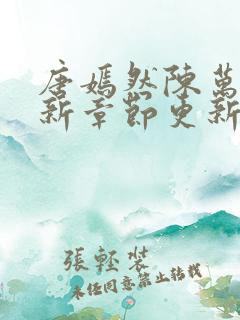 唐嫣然陳萬
新章節更新
張輕裝
未经同意禁止转载